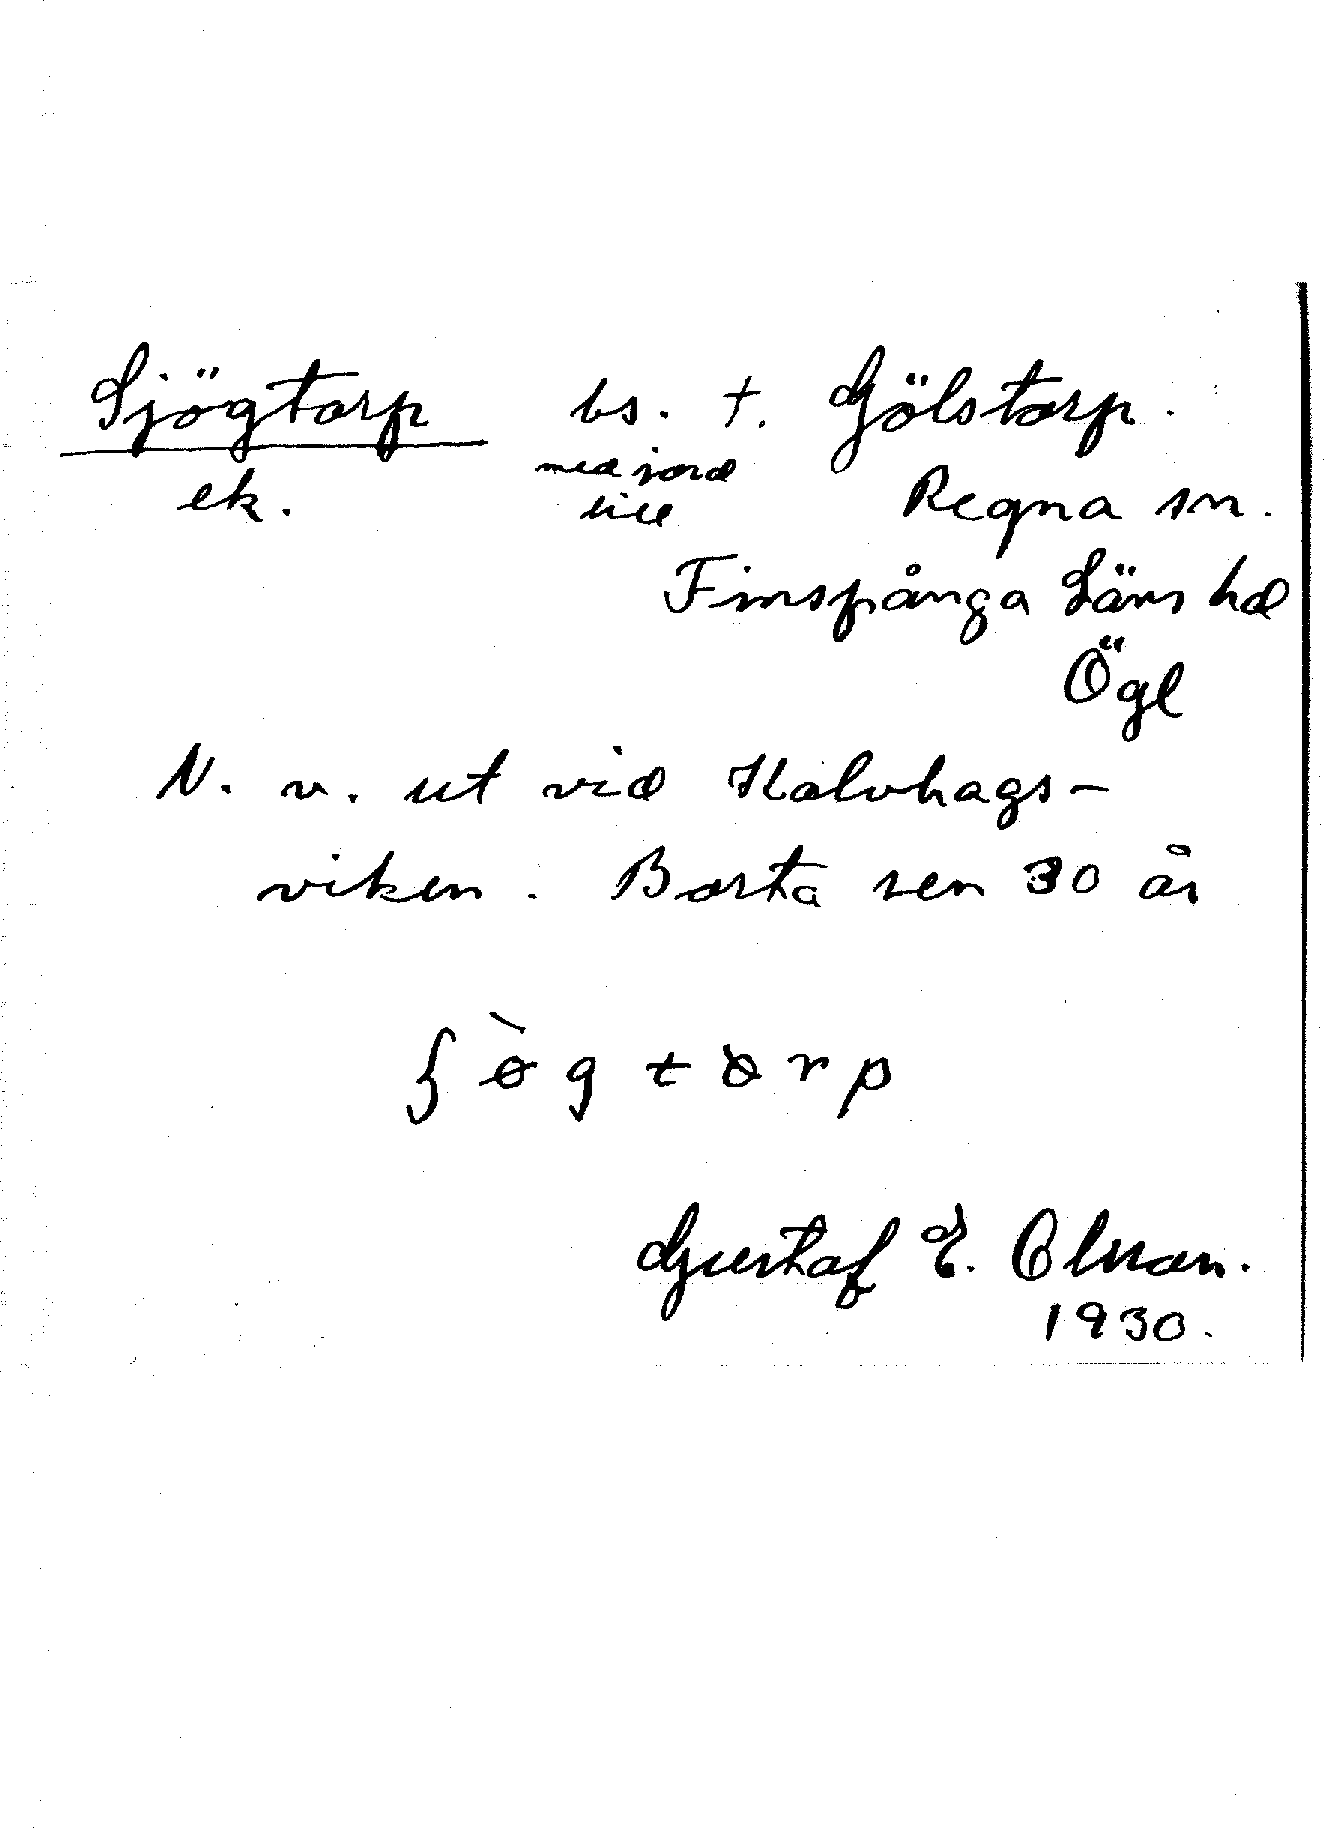 Sjögtorp bs. †. Gölstorp.
ek. med jord Regna sn.
till
Finspånga Läns hd
Ögl
N. v. ut vid Kalvhags-
viken. Borta sen 30 år
Gustaf E. Olsson.
1930.